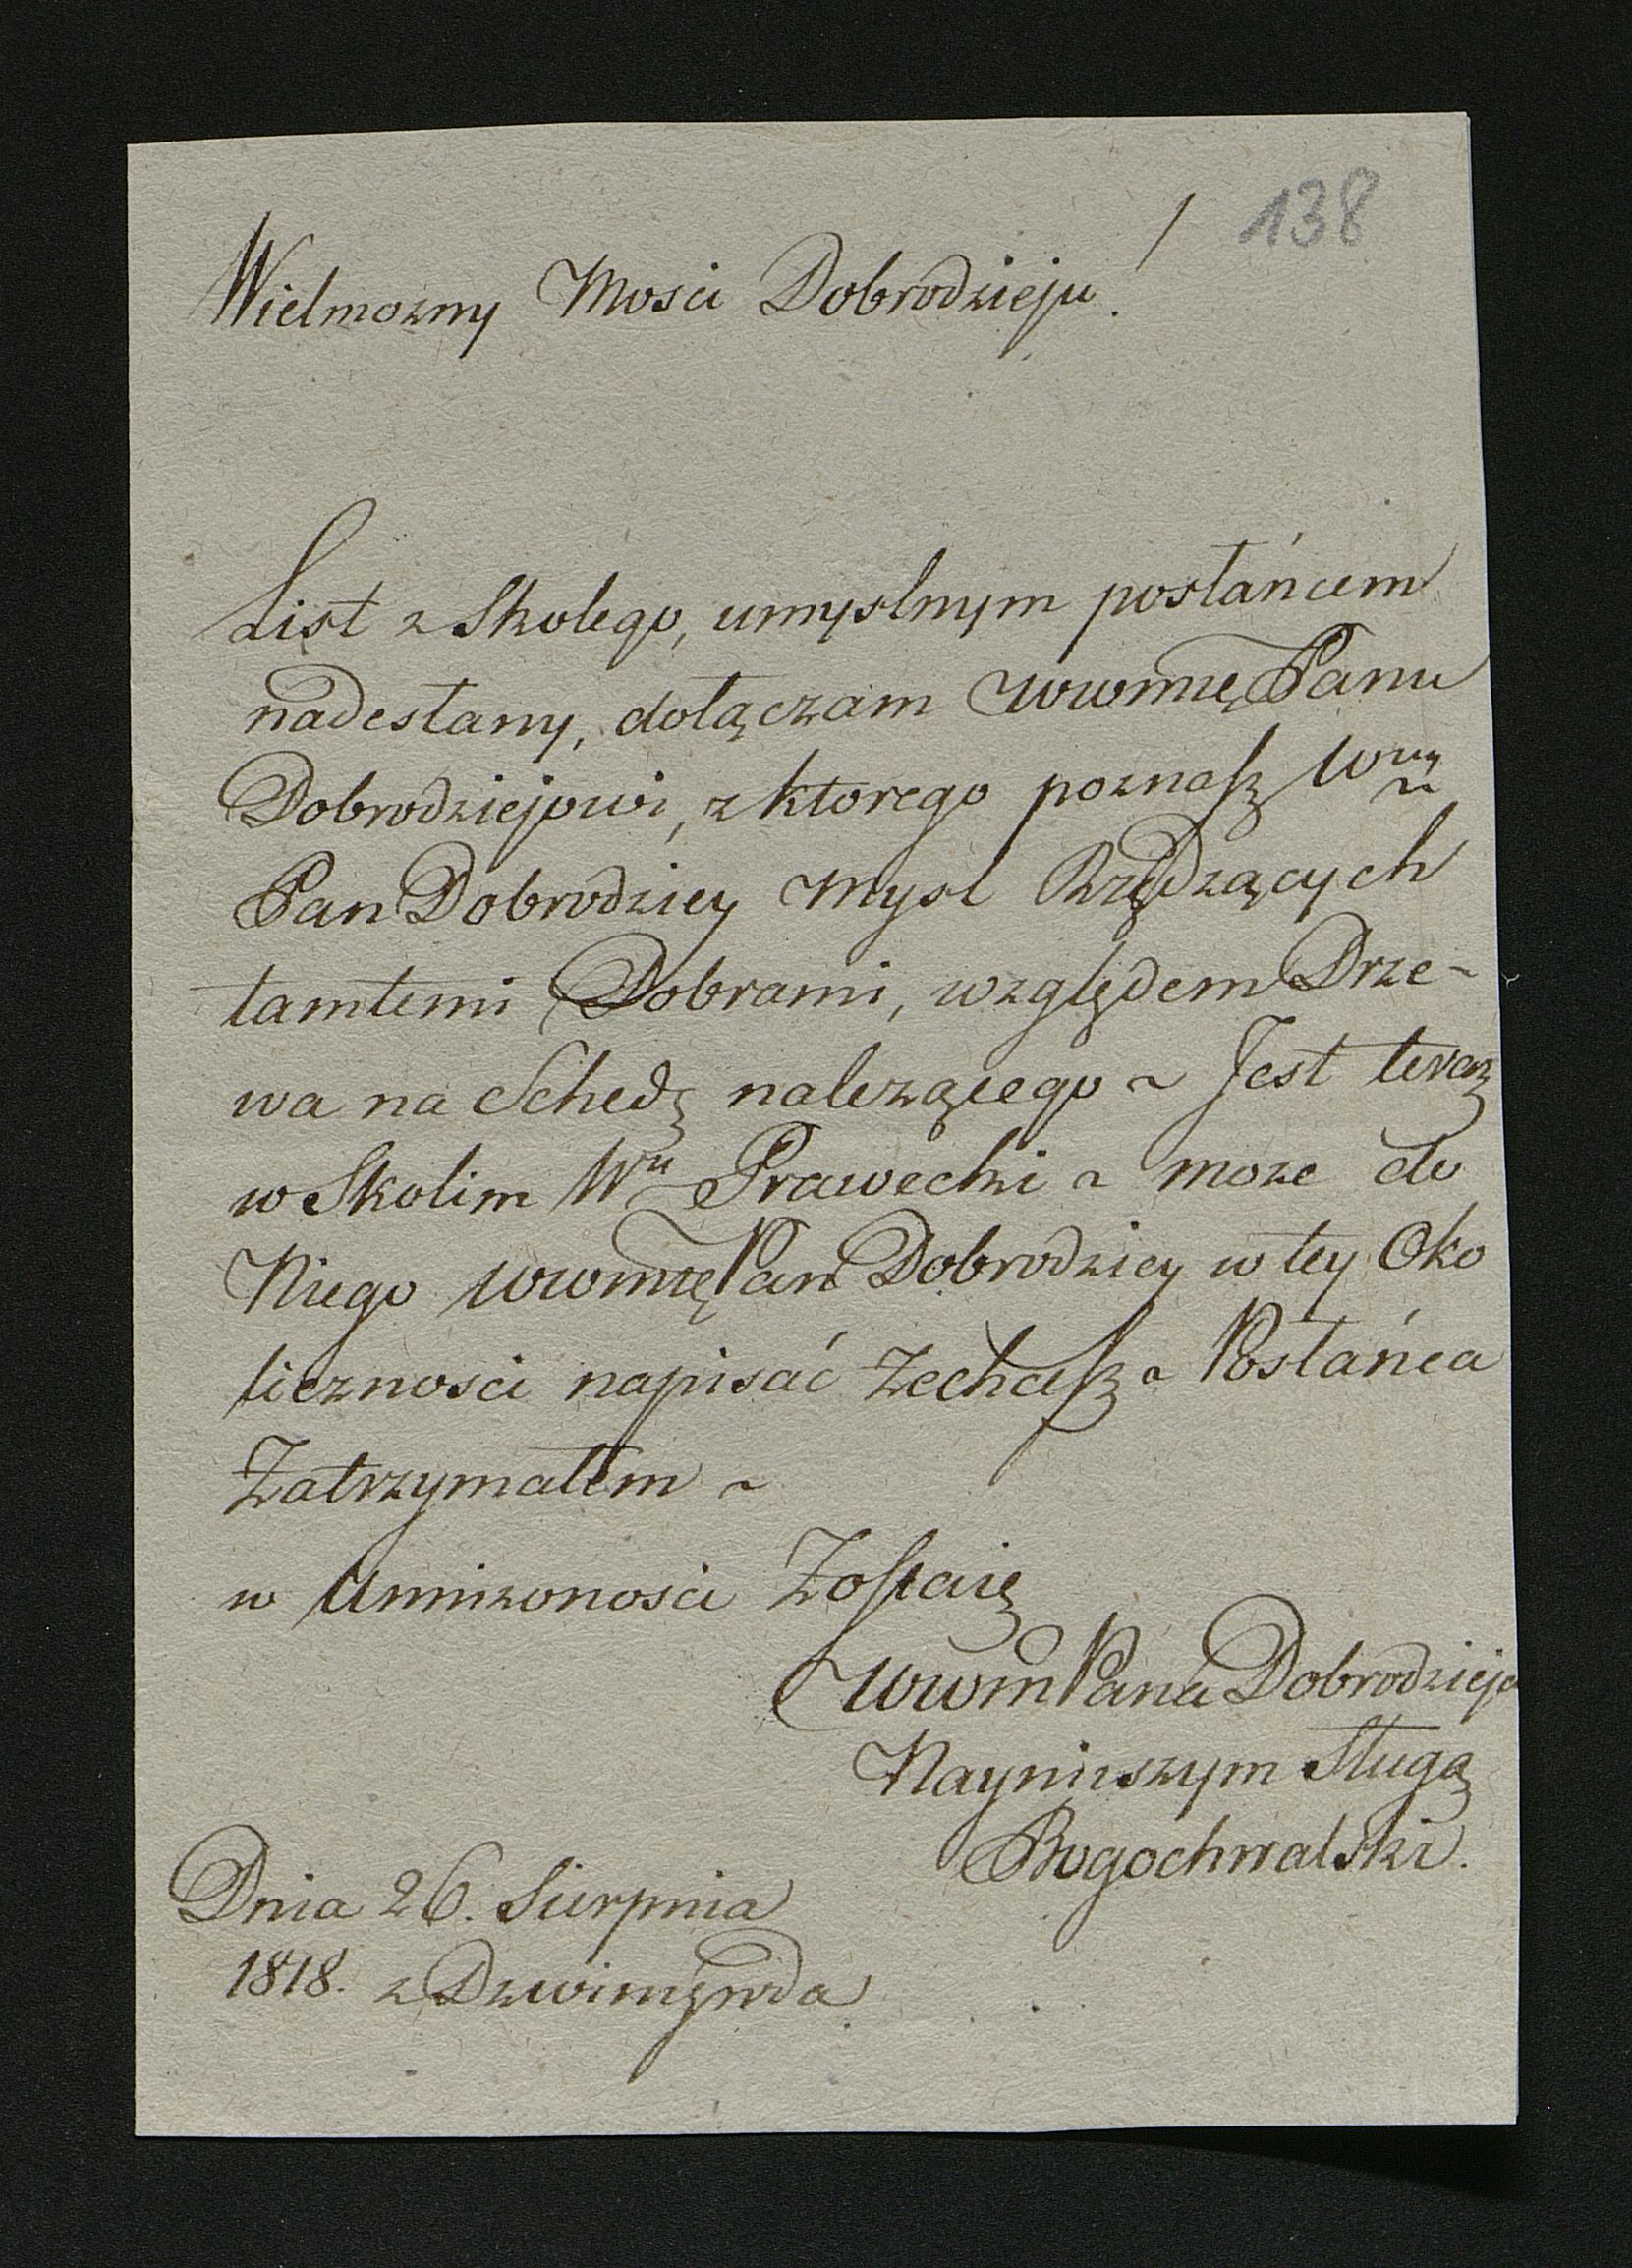 138
Wielmozny Mosci Dobrodzieju!
List z Skolego, umyslnym posłańcem
nadesłany, dołączam WWmię Panu
Dobrodziejowi, z ktorego poznasz Wny
Pan Dobrodziey Mysl Rządzących
tamtemi Dobrami, względem Drze-
wa na Schedę nalezącego ~ Jest teraz
w Skolim Wn Prawecki ~ moze do
Niego WWmię Pan Dobrodziey w tey Oko
licznosci napisać Zechcesz ~ Posłańca
Zatrzymałem ~
w Unizonosci Zostaię
WWm Pana Dobrodzieja
Nayniszym Sługą
Bogochwalski.
Dnia 26. Sierpnia
1818. z